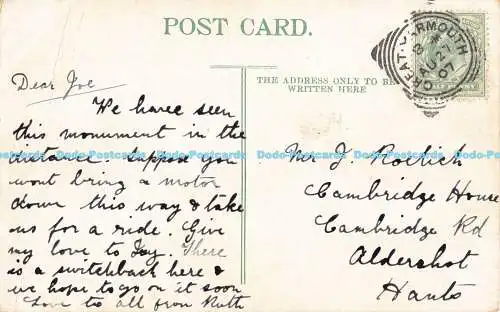 POST CARD.
THE ADDRESS ONLY TO BE
WRITTEN HERE
GREAT YARMOUTH
AU 27
07
Dear Joe
We have seen
this monument in the
distance. Suppose you
wont bring a motor
down this way & take
us for a ride. Give
my love to Joy. There
is a switchback here &
we hope to go on it soon
Love to all from Ruth
Mr J.
Cambridge House
Cambridge Rd
Aldershot
Hants
Dodo-Postcards Dodo-Postcards Dodo-Postcards Dodo-Postcards Dodo-Postcards